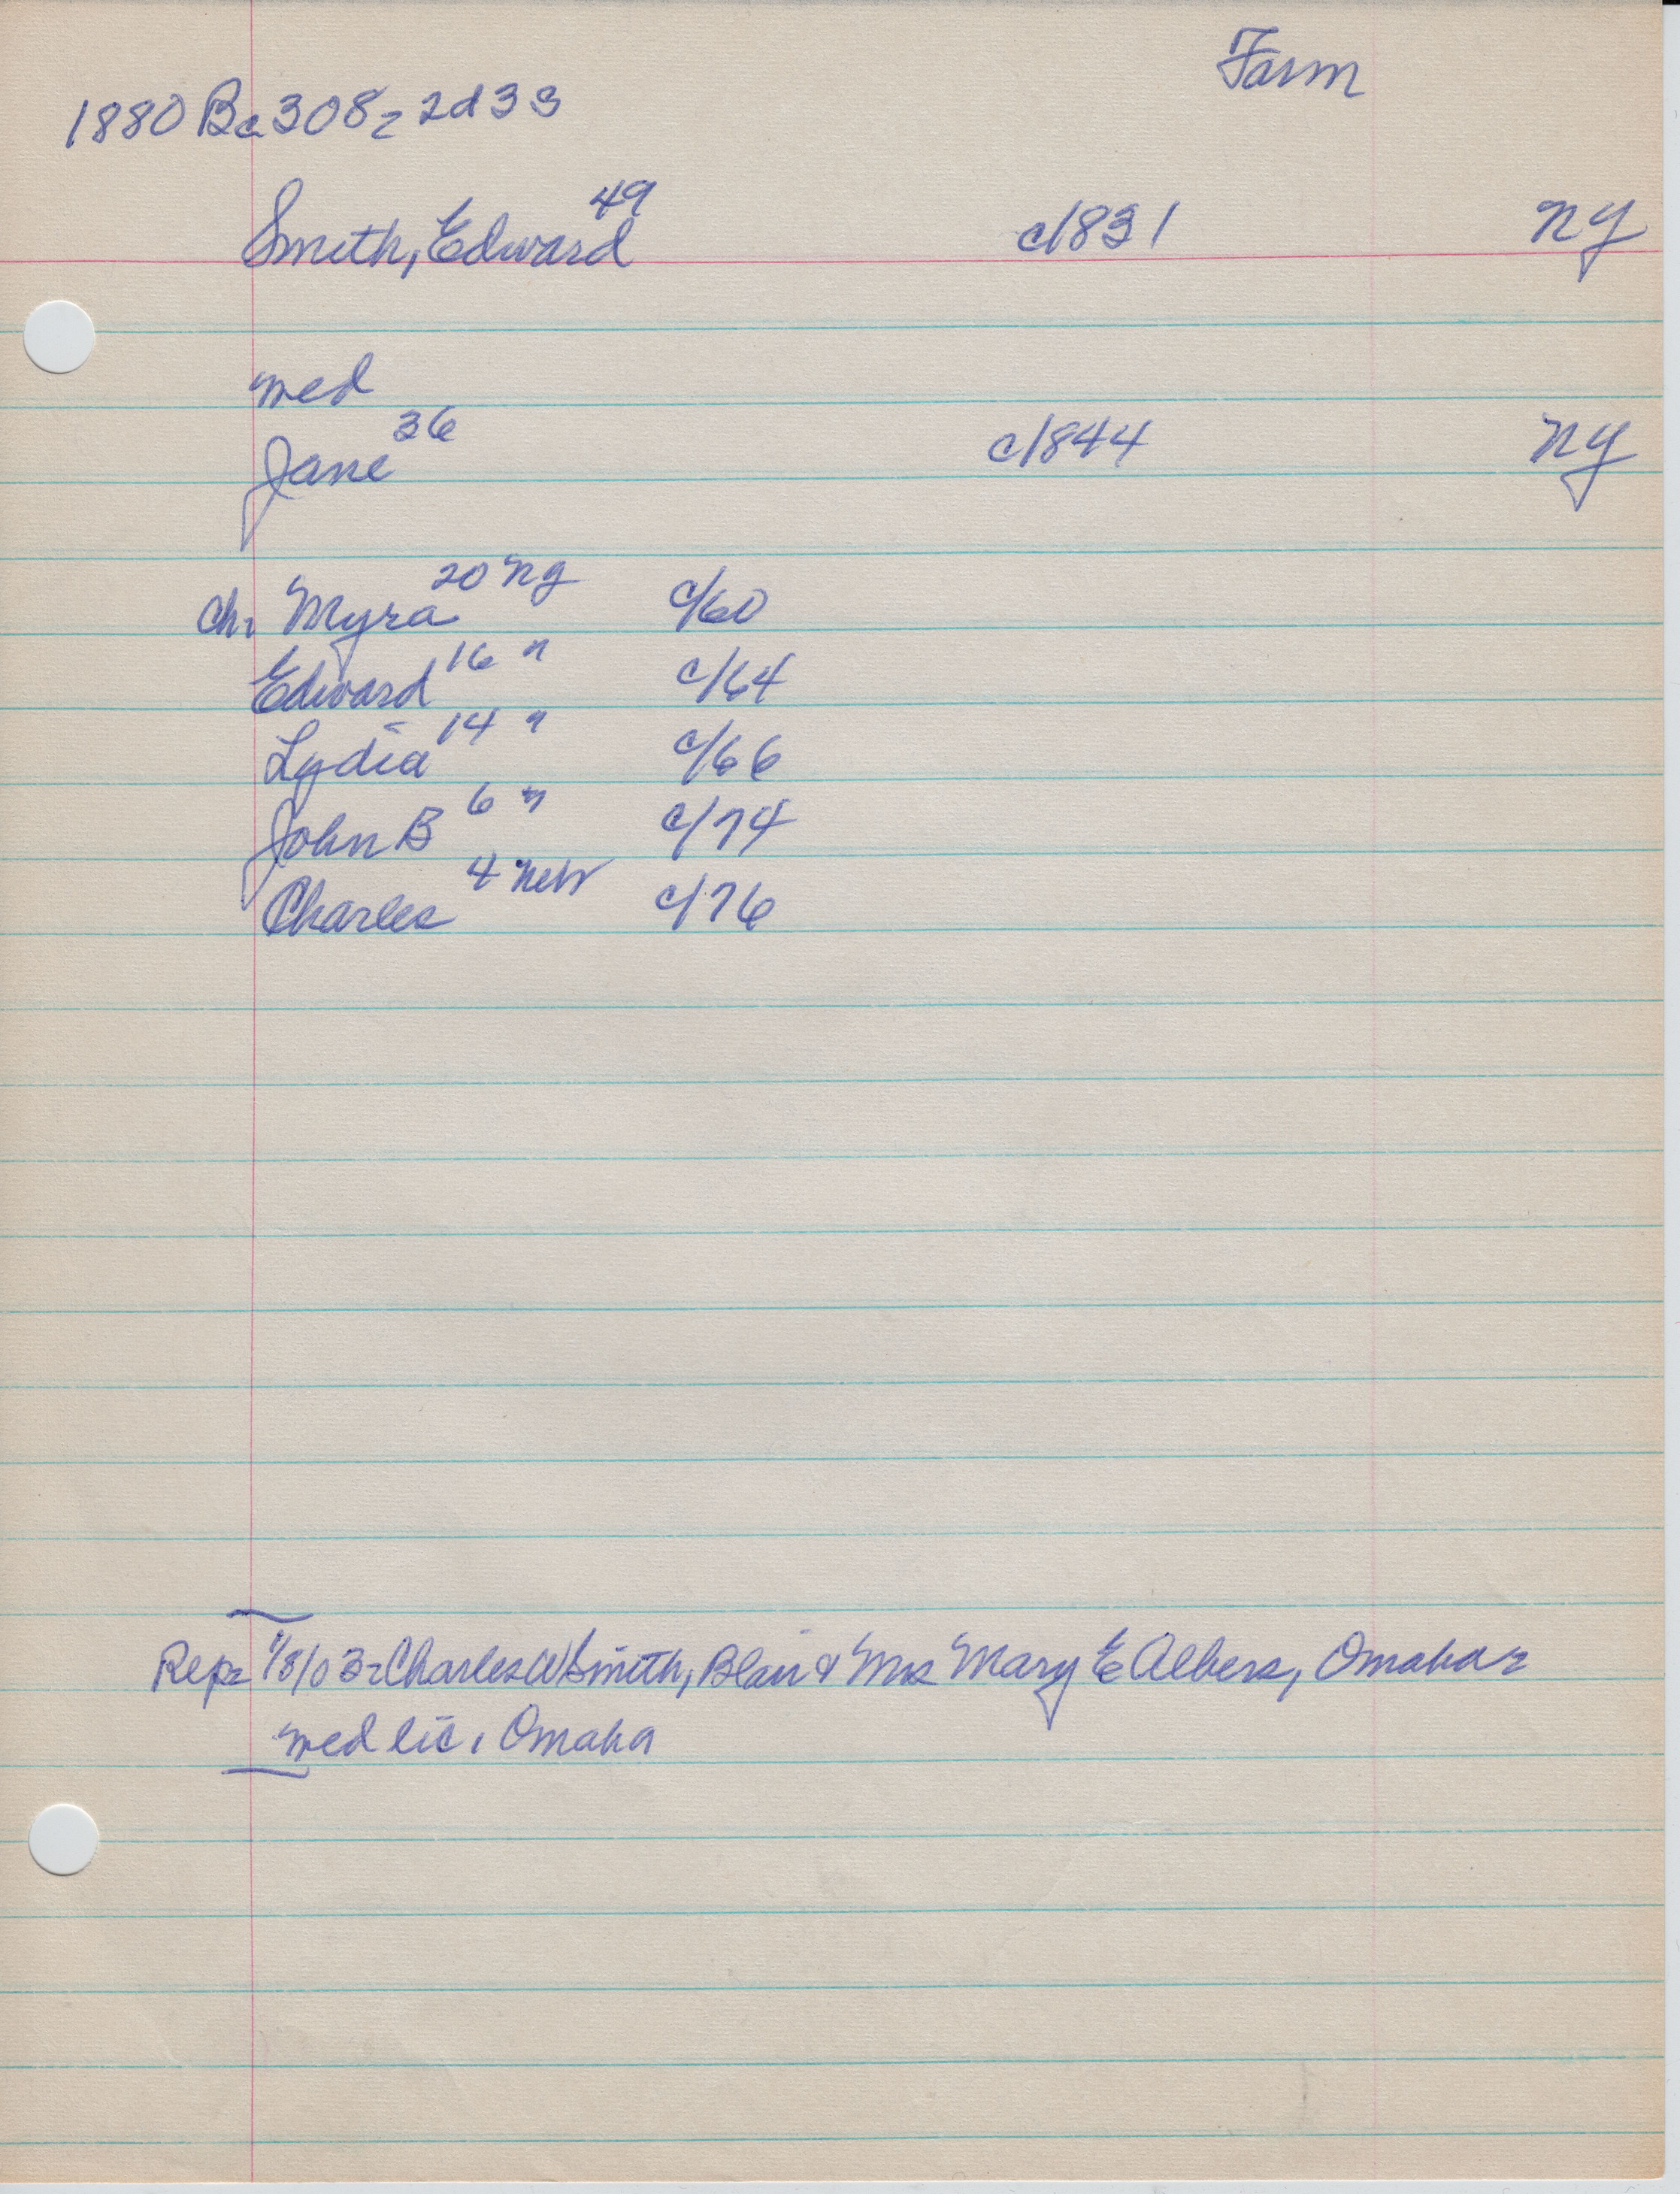 Farm
1880 Bc 308 = 2d33
Smith, Edward 49 c/831 NY
med
Jane 36 c/844 NY
Ch. Myra 20 NY c/60
Edward 16 " c/64
Lydia 14 " c/66
John B 6 " c/74
Charles 4 Neb c/76
Rep = 1/8/03 = Charles W Smith, Blair & Mrs Mary E Albers, Omaha =
med lic, Omaha